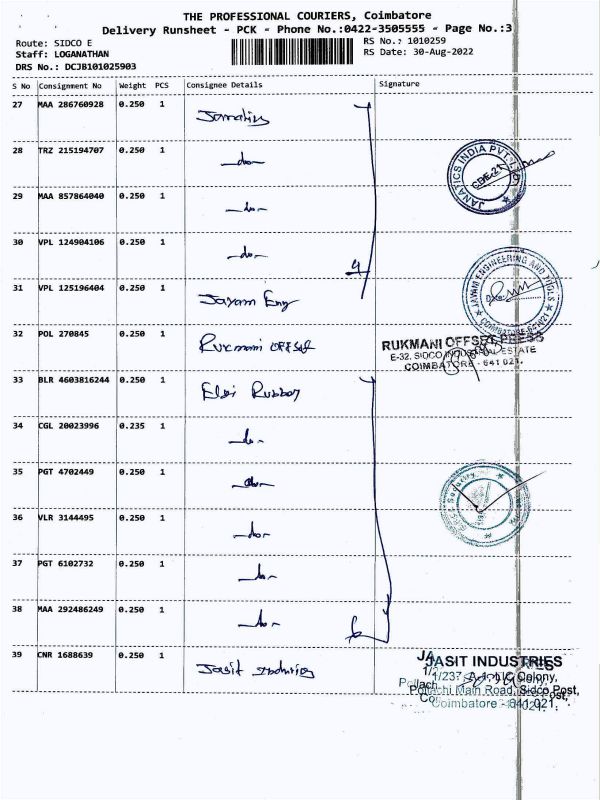 THE PROFESSIONAL COURIERS, Coimbatore
Delivery Runsheet - PCK - Phone No.:0422-3505555 - Page No.:3
Route: SIDCO E RS No.: 1010259
Staff: LOGANATHAN RS Date: 30-Aug-2022
DRS No.: DCJB101025903
S No Consignment No Weight PCS Consignee Details Signature
27 MAA 286760928 0.250 1
28 TRZ 215194707 0.250 1 -do-
JANATICS INDIA PVT. LTD
29 MAA 857864040 0.250 1 -do-
30 VPL 124904106 0.250 1 -do- 4
JAYAM ENGINEERING AND TOOLS
COIMBATORE-641021
31 VPL 125196404 0.250 1 Jayam Eng
32 POL 270845 0.250 1 Rukmani offset
RUKMANI OFFSET PRESS
E-32, SIDCO INDUSTRIAL ESTATE
COIMBATORE - 641 021.
33 BLR 4603816244 0.250 1 Elgi Rubber
34 CGL 20023996 0.235 1 -do-
35 PGT 4702449 0.250 1 -do-
36 VLR 3144495 0.250 1 -do-
37 PGT 6102732 0.250 1 -do-
38 MAA 292486249 0.250 1 -do- 6
39 CNR 1688639 0.250 1 Jasit Industries
JASIT INDUSTRIES
1/237, A-1, LIC Colony,
Pollachi Main Road, Sidco Post,
Coimbatore - 641 021.